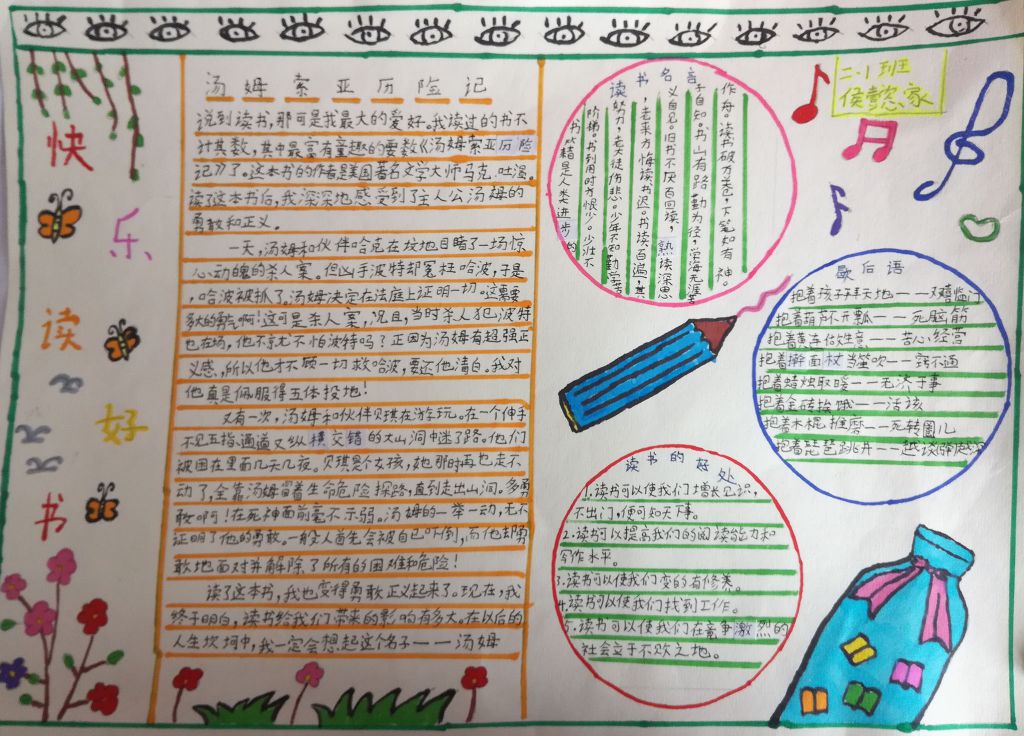 快
乐
读
好
书
汤姆索亚历险记
说到读书，那可是我最大的爱好。我读过的书不
计其数，其中最富有童趣的要数《汤姆索亚历险
记》了。这本书的作者是美国著名文学大师马克.吐温。
读了这本书后，我深深地感受到了主人公汤姆的
勇敢和正义。
一天，汤姆和伙伴哈克在坟地目睹了一场惊
心动魄的杀人案。但凶手波特却冤枉哈波，于是
，哈波被抓了。汤姆决定在法庭上证明一切。这需要
多大的勇气啊！这可是杀人案，况且，当时杀人犯波特
也在场，他不尤不怕波特吗？正因为汤姆有超强正
义感，所以他才不顾一切救哈波，要还他清白。我对
他真是佩服得五体投地！
又有一次，汤姆和伙伴贝琪在游玩。在一个伸手
不见五指、通道又纵横交错的大山洞中迷了路。他们
被困在里面几天几夜。贝琪是个女孩，她那时再也走不
动了，全靠汤姆冒着生命危险探路，直到走出山洞。多勇
敢啊！在死神面前毫不示弱。汤姆的一举一动，无不
证明了他的勇敢。一般人首先会被自己吓倒，而他却勇
敢地面对并解除了所有的困难和危险！
读了这本书，我也变得勇敢正义起来了。现在，我
终于明白，读书给我们带来的影响有多大。在以后的
人生坎坷中，我一定会想起这个名子——汤姆
读书名言
作舟。读书破万卷，下笔如有神。
于自知。书山有路勤为径，学海无涯苦
义自见。旧书不厌百回读，熟读深思
老来方悔读书迟。书读百遍，其
努力，老大徒伤悲。少年不知勤学苦
阶梯。书到用时方恨少。少壮不
书籍是人类进步的
二.1班
侯懿家
歇后语
抱着孩子拜天地——双喜临门
抱着葫芦不开瓢——死脑筋
抱着黄连做生意——苦心经营
抱着擀面杖当笙吹——窍不通
抱着蜡烛取暖——无济于事
抱着金砖挨饿——活该
抱着木棍推磨——死转圈儿
抱着琵琶跳井——越谈
读书的好处
1.读书可以使我们增长见识，
不出门，便可知天下事。
2.读书可以提高我们的阅读能力和
写作水平。
3.读书可以使我们变的有修养。
4.读书可以使我们找到工作。
5.读书可以使我们在竞争激烈的
社会立于不败之地。